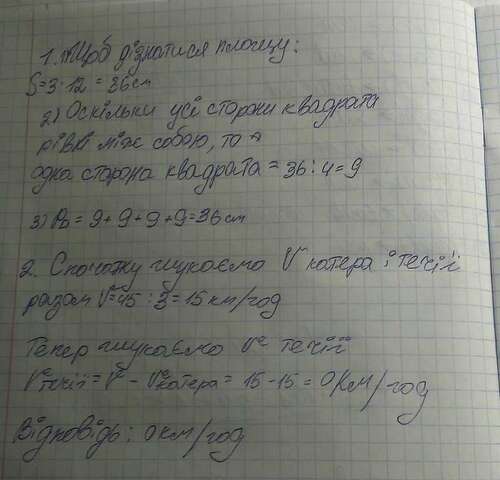 1. Щоб дізнатися площу:
S=3·12=36см
2) Оскільки усі сторони квадрата
рівні між собою, то
одна сторона квадрата = 36:4=9
3) P□ = 9+9+9+9=36см
2. Спочатку шукаємо V катера і течії
разом V=45:3=15км/год
Тепер шукаємо V течії
Vтечії = V - Vкатера = 15-15=0км/год
Відповідь: 0км/год